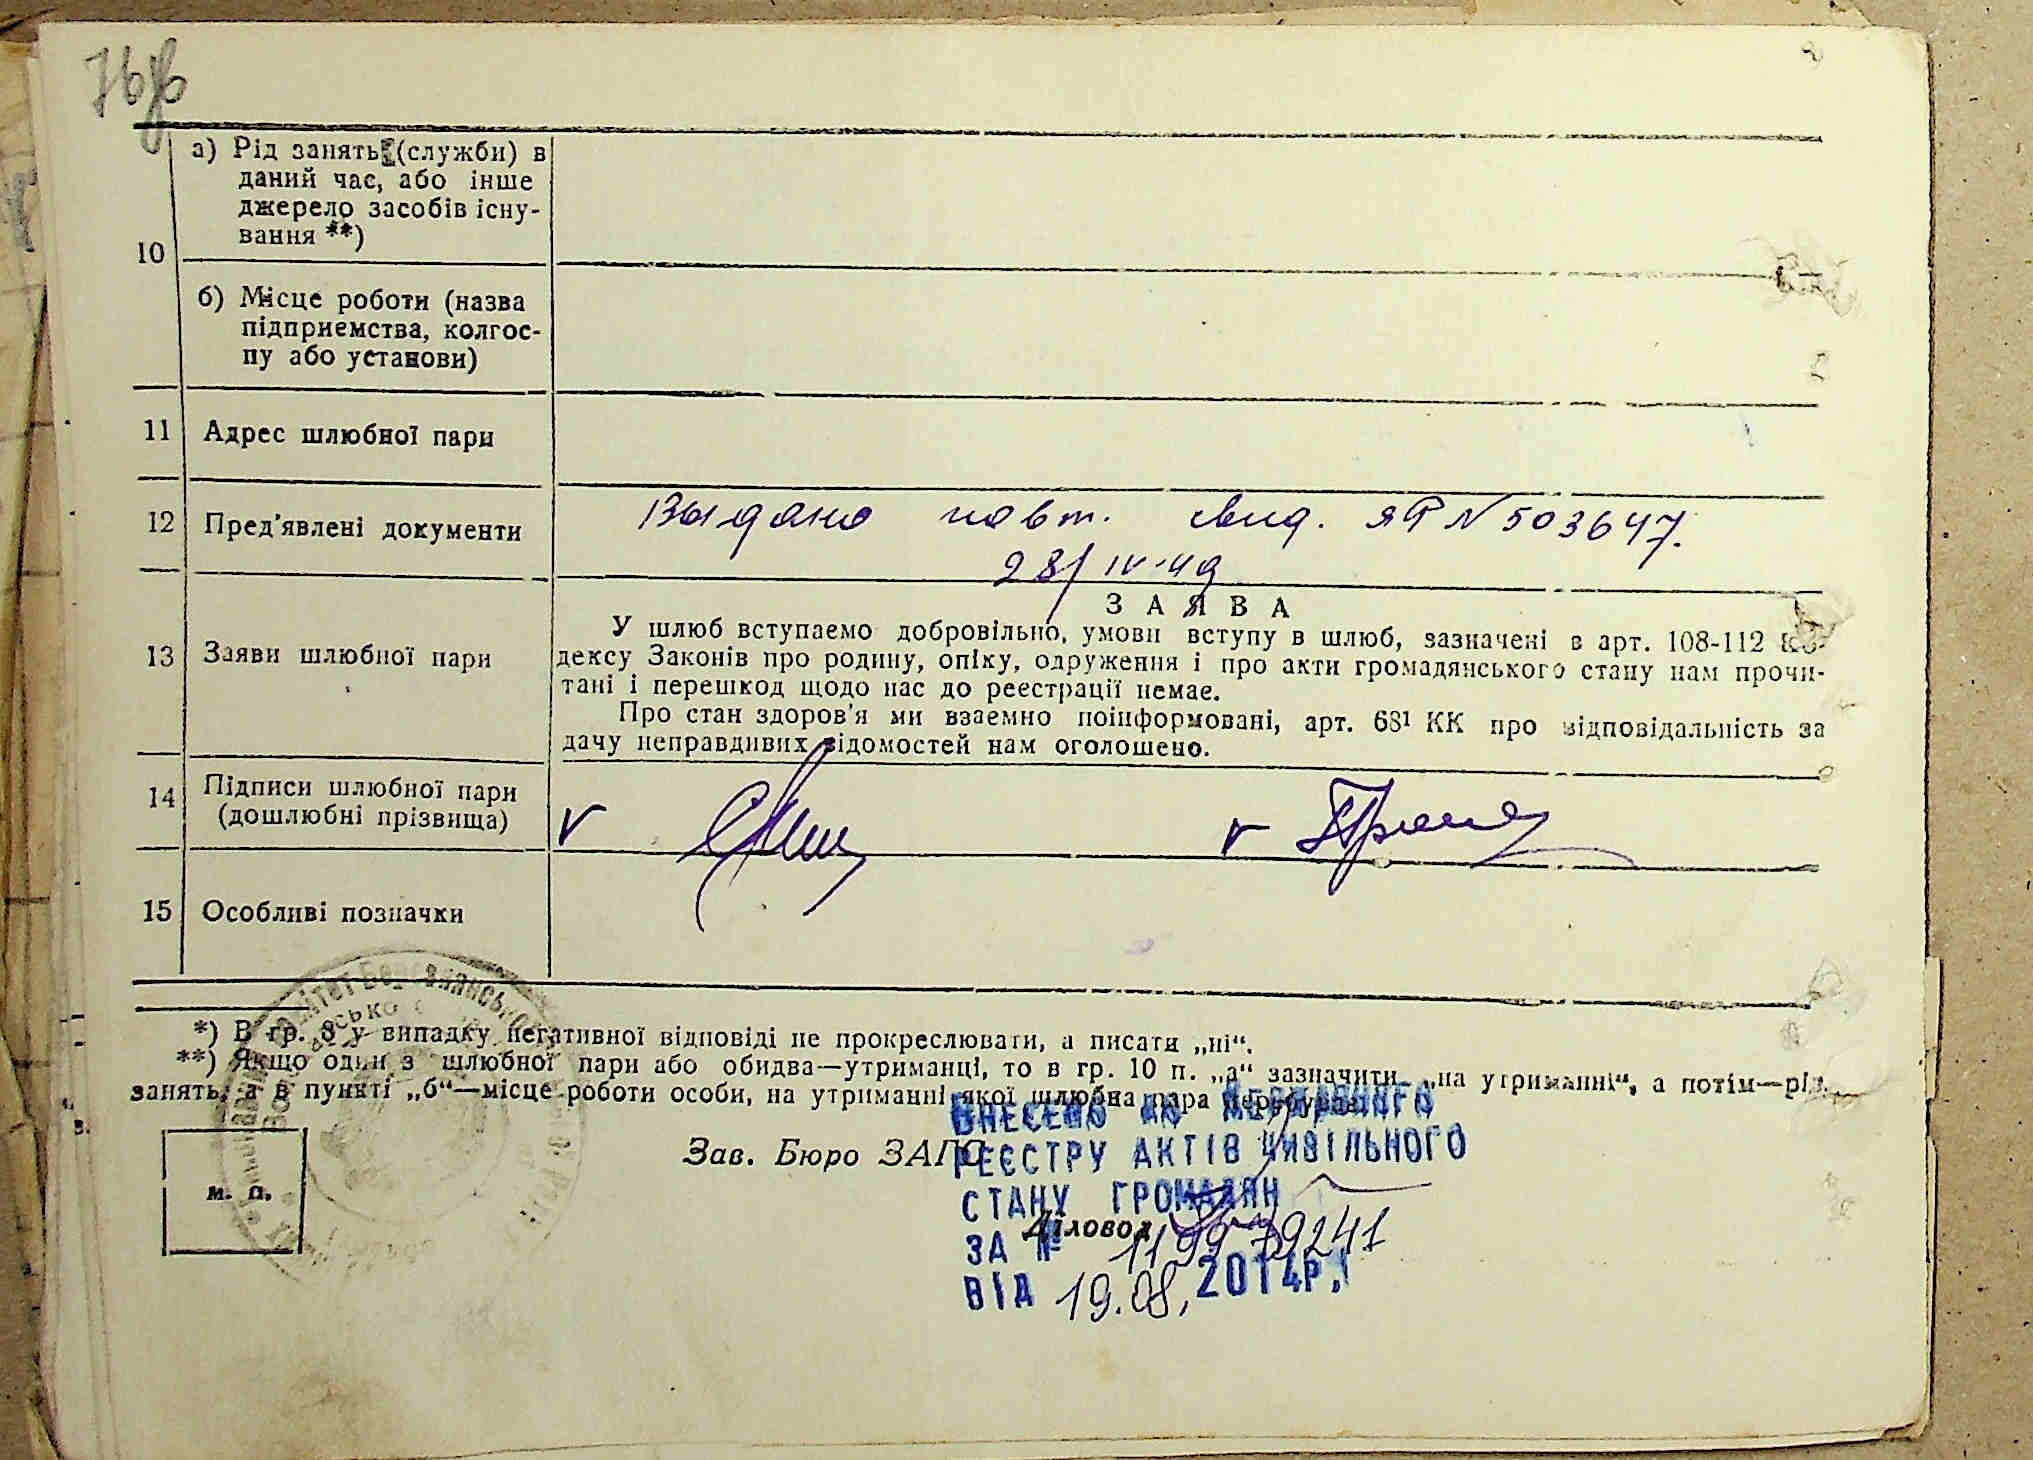 а) Рід занять (служби) в
даний час, або інше
джерело засобів існу-
вання **)
10
б) Місце роботи (назва
підприемства, колгос-
пу або установи)
11 Адрес шлюбної пари
12 Пред'явлені документи
Выдано повт. свид. ЯР N 503647.
28/IV-49
ЗАЯВА
13 Заяви шлюбної пари
У шлюб вступаемо добровільно, умови вступу в шлюб, зазначені в арт. 108-112 Ко-
дексу Законів про родину, опіку, одруження і про акти громадянського стану нам прочи-
тані і перешкод щодо нас до реестрації немае.
Про стан здоров'я ми взаемно поінформовані, арт. 68¹ КК про відповідальність за
дачу неправдивих відомостей нам оголошено.
14 Підписи шлюбної пари
(дошлюбні прізвища)
15 Особливі позначки
*) В гр. 8 у випадку негативної відповіді не прокреслювати, а писати „ні“.
**) Якщо один з шлюбної пари або обидва—утриманці, то в гр. 10 п. „а“ зазначити „на утриманні“, а потім—рід
занять, а в пункті „б“—місце роботи особи, на утриманні якої шлюбна пара
м. п.
Зав. Бюро ЗАГС
Діловод
ВНЕСЕНО ДО ДЕРЖАВНОГО
РЕЄСТРУ АКТІВ ЦИВІЛЬНОГО
СТАНУ ГРОМАДЯН
ЗА № 1199 79241
ВІД 19.08, 2014р.